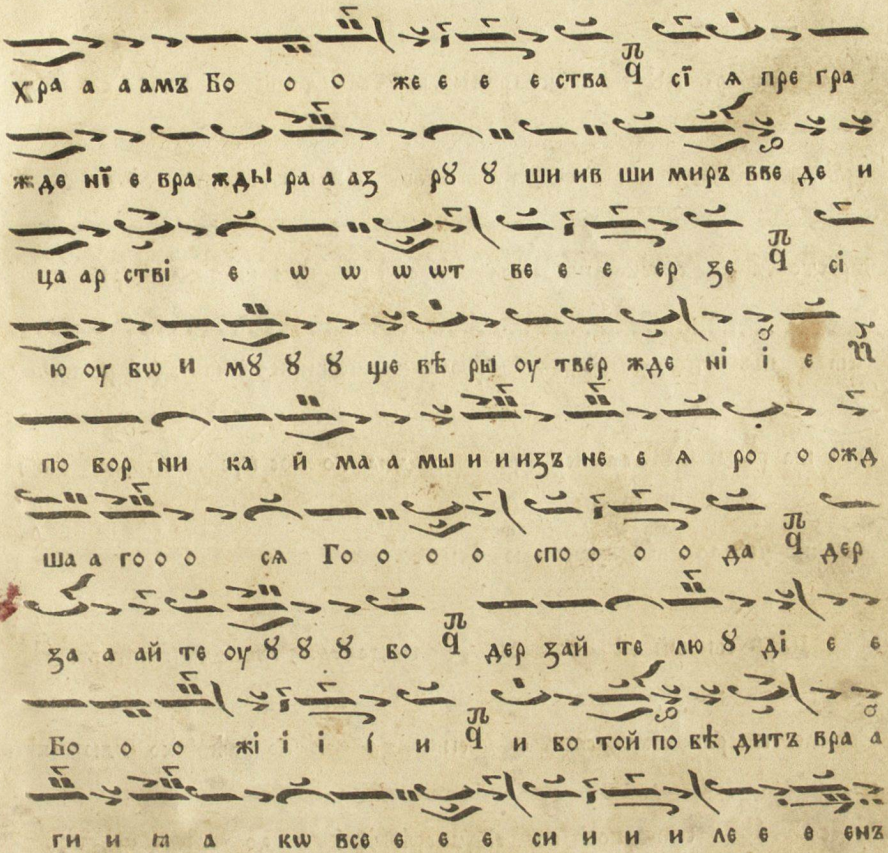 хра а а амъ Бо о о же е е е ства сї ѧ пре гра
жде нї е вра жды ра а аз рꙋ ꙋ ши ив ши миръ вве де и
ца ар стві е ѡ ѡ ѡ ѡт ве е е ер зе сі
ю оу бѡ и мꙋ ꙋ ꙋ ще вѣ ры оу твер жде ні і е
по бор ни ка й ма а мы и и изъ не е ѧ ро о ожд
ша а го о о сѧ Го о о о спо о о о да дер
за а ай те оу ꙋ ꙋ ꙋ бо дер зай те лю ꙋ ді е е
Бо о о жі і і і и и бо той по бѣ дитъ вра а
ги и ꙗ а кѡ все е е е си и и и ле е е енъ